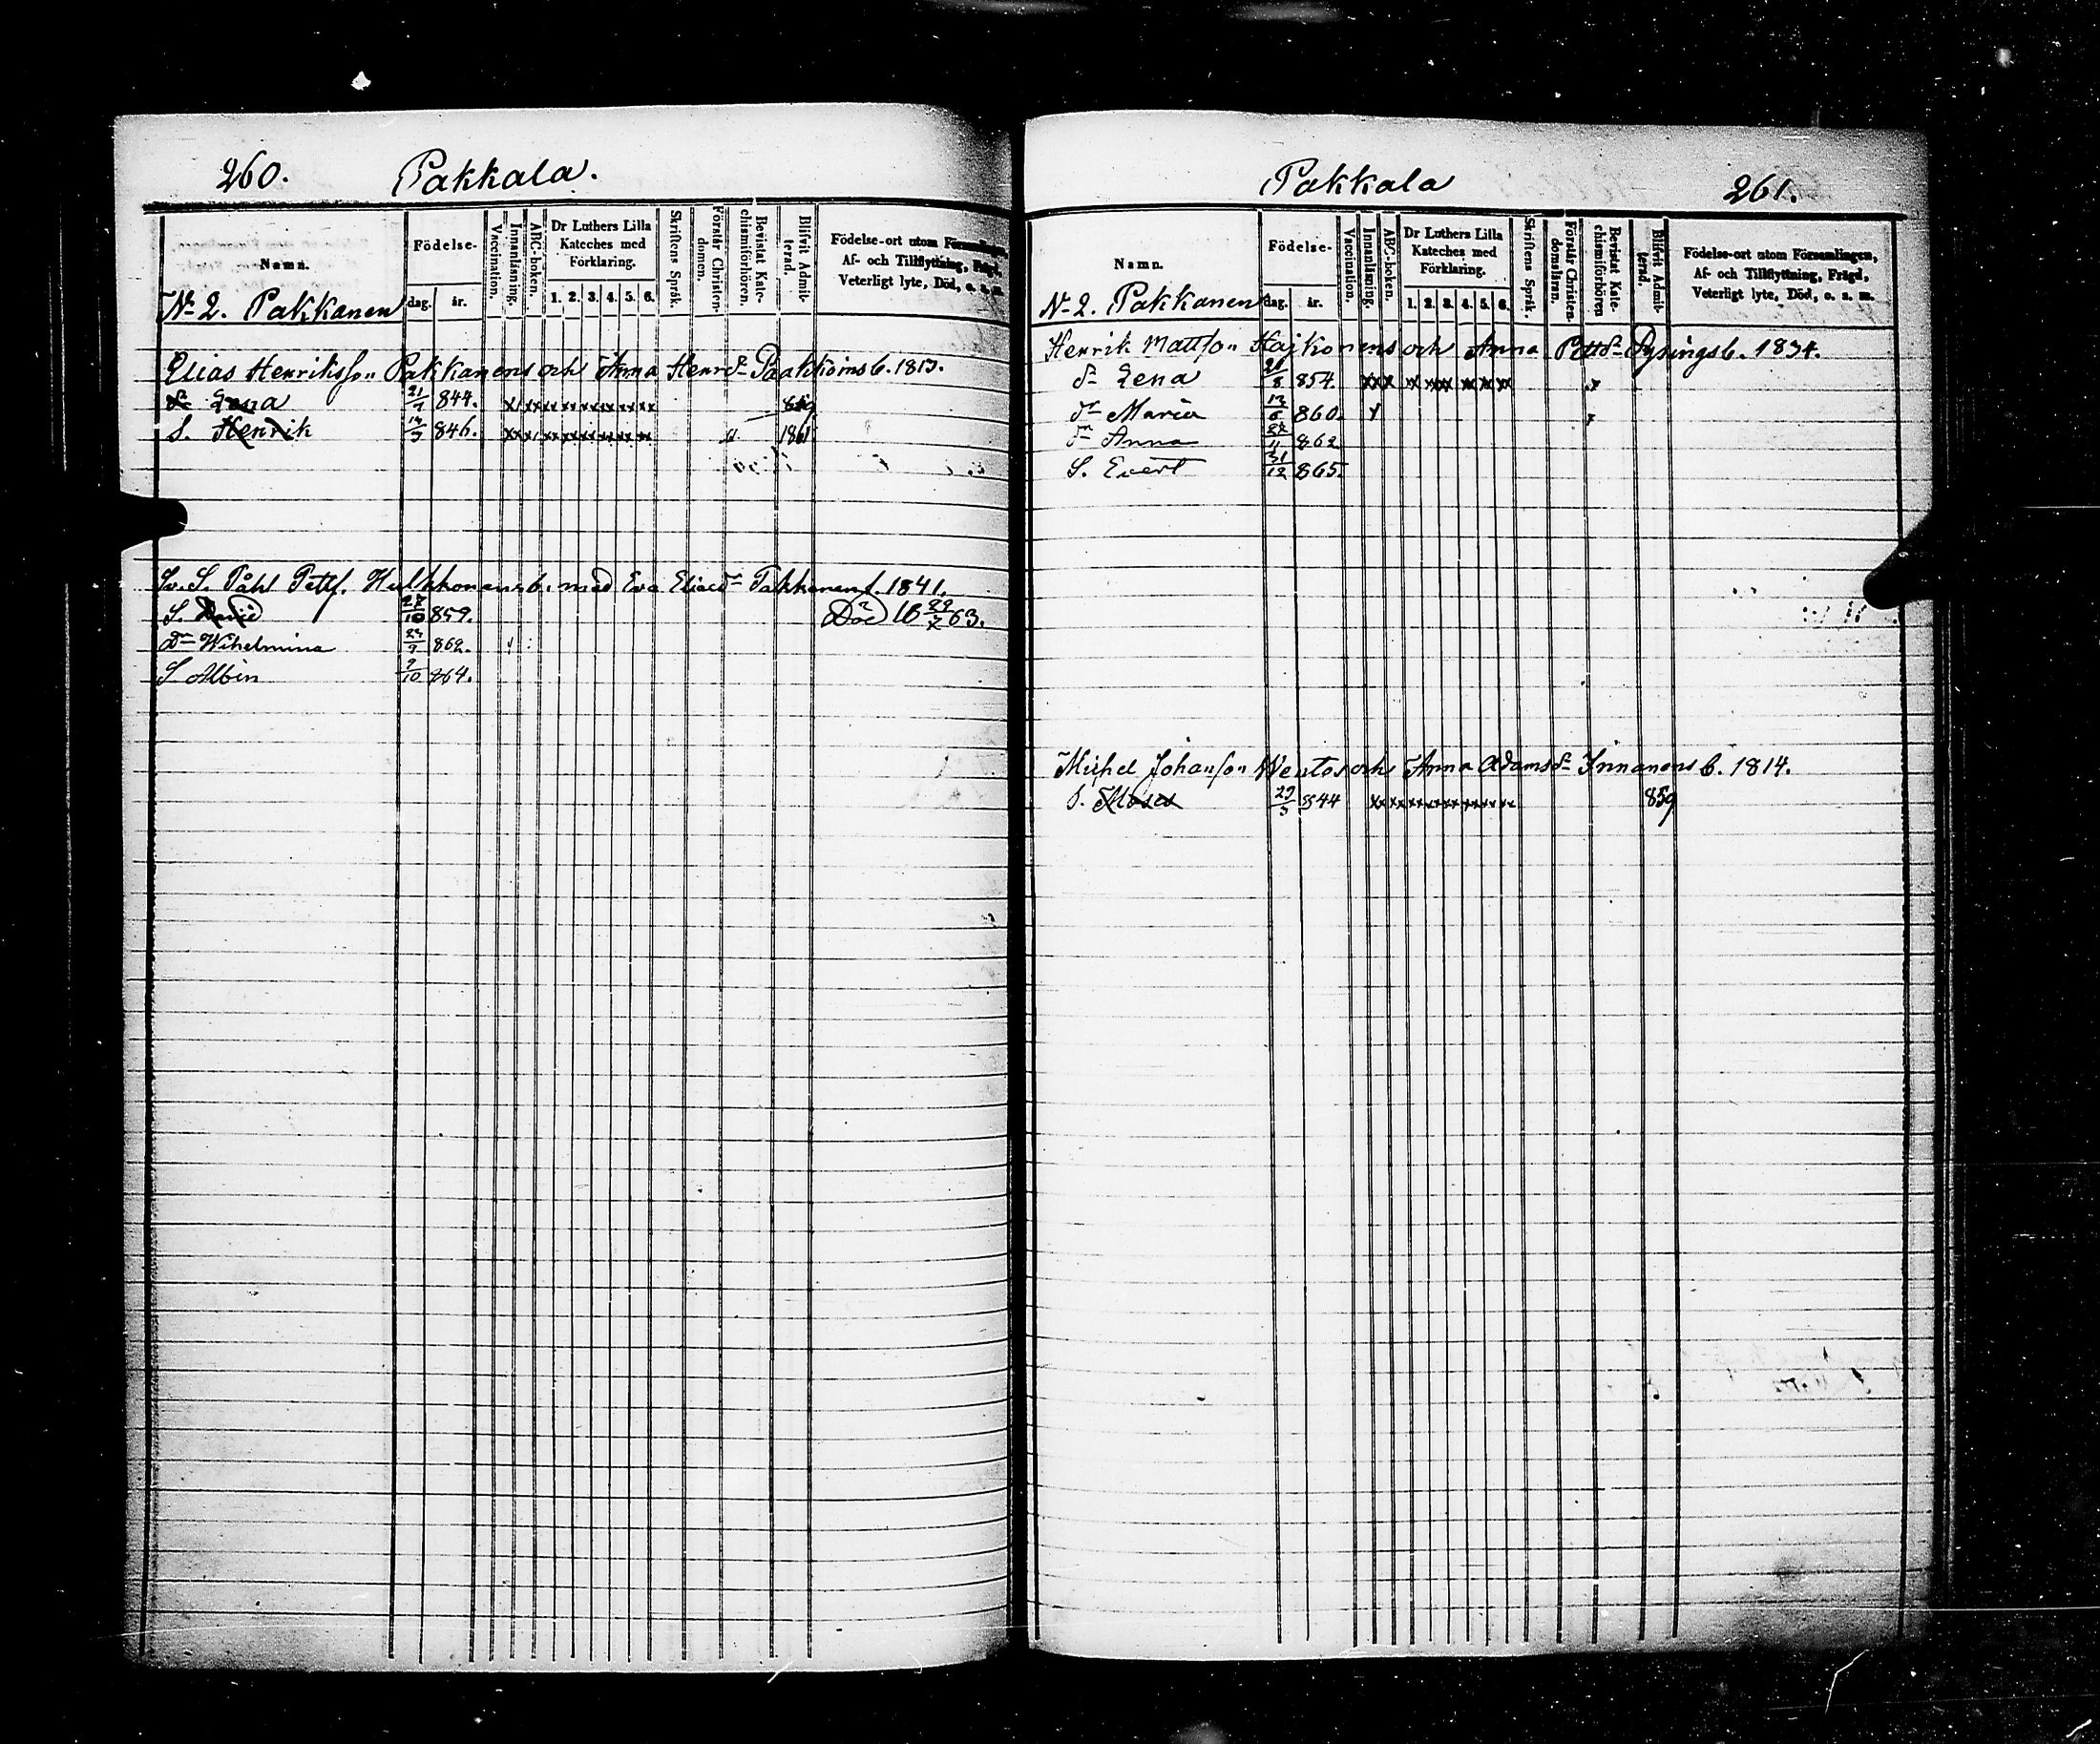 260. Pakkala.
Namn. Födelse- Vaccination. Innanläsning. ABC-boken. Dr Luthers Lilla Kateches med Förklaring. Skriftens Språk. Förstår Christendomen. Bevistat Katechismiförhören. Blifvit Admitterad. Födelse-ort utom Församlingen, Af- och Tillflyttning, Frägd, Veterligt lyte, Död, o. s. m.
dag. år. 1. 2. 3. 4. 5. 6.
No 2. Pakkanen
Elias Henriksson Pakkanens och Anna Henrdr Paakkoins b. 1813.
dr Lena 21/7 844. x xx xx xx xx xx xx xx 859
S. Henrik 846. xxx xx xx xx xx xx xx 1861
Sv. S. Påhl Pettf. Hulkkonens b. med Eva Eliaedr Pakkanen f. 1841.
S. David 27/10 859. Död 18 22/x 63.
Dr Wihelmina 862.
S Albin 9/10 864.
Pakkala 261.
Namn. Födelse- Vaccination. Innanläsning. ABC-boken. Dr Luthers Lilla Kateches med Förklaring. Skriftens Språk. Förstår Christendomsläran. Bevistat Katechismiförhören Blifvit Admitterad. Födelse-ort utom Församlingen, Af- och Tillflyttning, Frägd, Veterligt lyte, Död, o. s. m.
dag. år. 1. 2. 3. 4. 5. 6.
No 2. Pakkanen
Henrik Mattson Hajkonens och Anna Pettdr Pysings b. 1834.
dr Lena 854. xxx xx xxx xx xx xx x
dr Maria 13/6 860. x
dr Anna 862
S. Evert 31/12 865.
Michel Johanson Wentos och Anna Adamsdr Innanens b. 1814.
S. Moses 29/3 844 xx xx xx xx xx xx xx 859